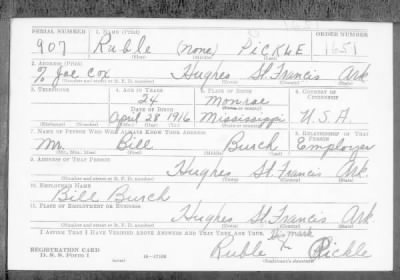 SERIAL NUMBER 1. NAME (Print) ORDER NUMBER
907 Ruble (none) PICKLE 1651
(First) (Middle) (Last)
2. ADDRESS (Print)
% Joe Cox Hughes St. Francis Ark
(Number and street or R. F. D. number) (Town) (County) (State)
3. TELEPHONE 4. AGE IN YEARS 5. PLACE OF BIRTH 6. COUNTRY OF CITIZENSHIP
24 Monroe
DATE OF BIRTH (Town or county)
April 28 1916 Mississippi U.S.A.
(Exchange) (Number) (Mo.) (Day) (Yr.) (State or country)
7. NAME OF PERSON WHO WILL ALWAYS KNOW YOUR ADDRESS 8. RELATIONSHIP OF THAT PERSON
Mr. Bill Burch Employer
(Mr., Mrs., Miss) (First) (Middle) (Last)
9. ADDRESS OF THAT PERSON
Hughes St. Francis Ark
(Number and street or R. F. D. number) (Town) (County) (State)
10. EMPLOYER'S NAME
Bill Burch
11. PLACE OF EMPLOYMENT OR BUSINESS
Hughes St. Francis Ark.
(Number and street or R. F. D. number) (Town) (County) (State)
I AFFIRM THAT I HAVE VERIFIED ABOVE ANSWERS AND THAT THEY ARE TRUE.
his mark
REGISTRATION CARD Ruble X Pickle
D. S. S. Form 1 (over) 16—17105 (Registrant's signature)